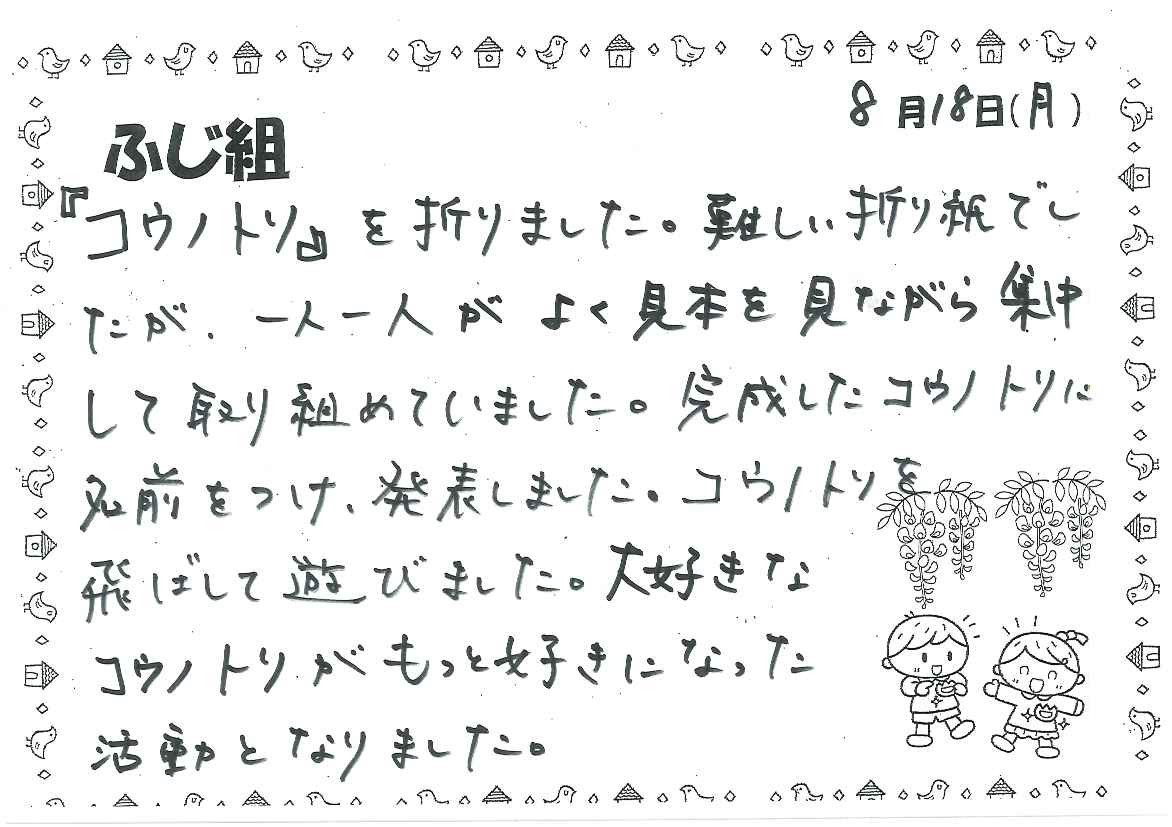 8月18日(月)
ふじ組
『コウノトリ』を折りました。難しい折り紙でし
たが、一人一人がよく見本を見ながら集中
して取り組めていました。完成したコウノトリに
名前をつけ、発表しました。コウノトリを
飛ばして遊びました。大好きな
コウノトリがもっと好きになった
活動となりました。